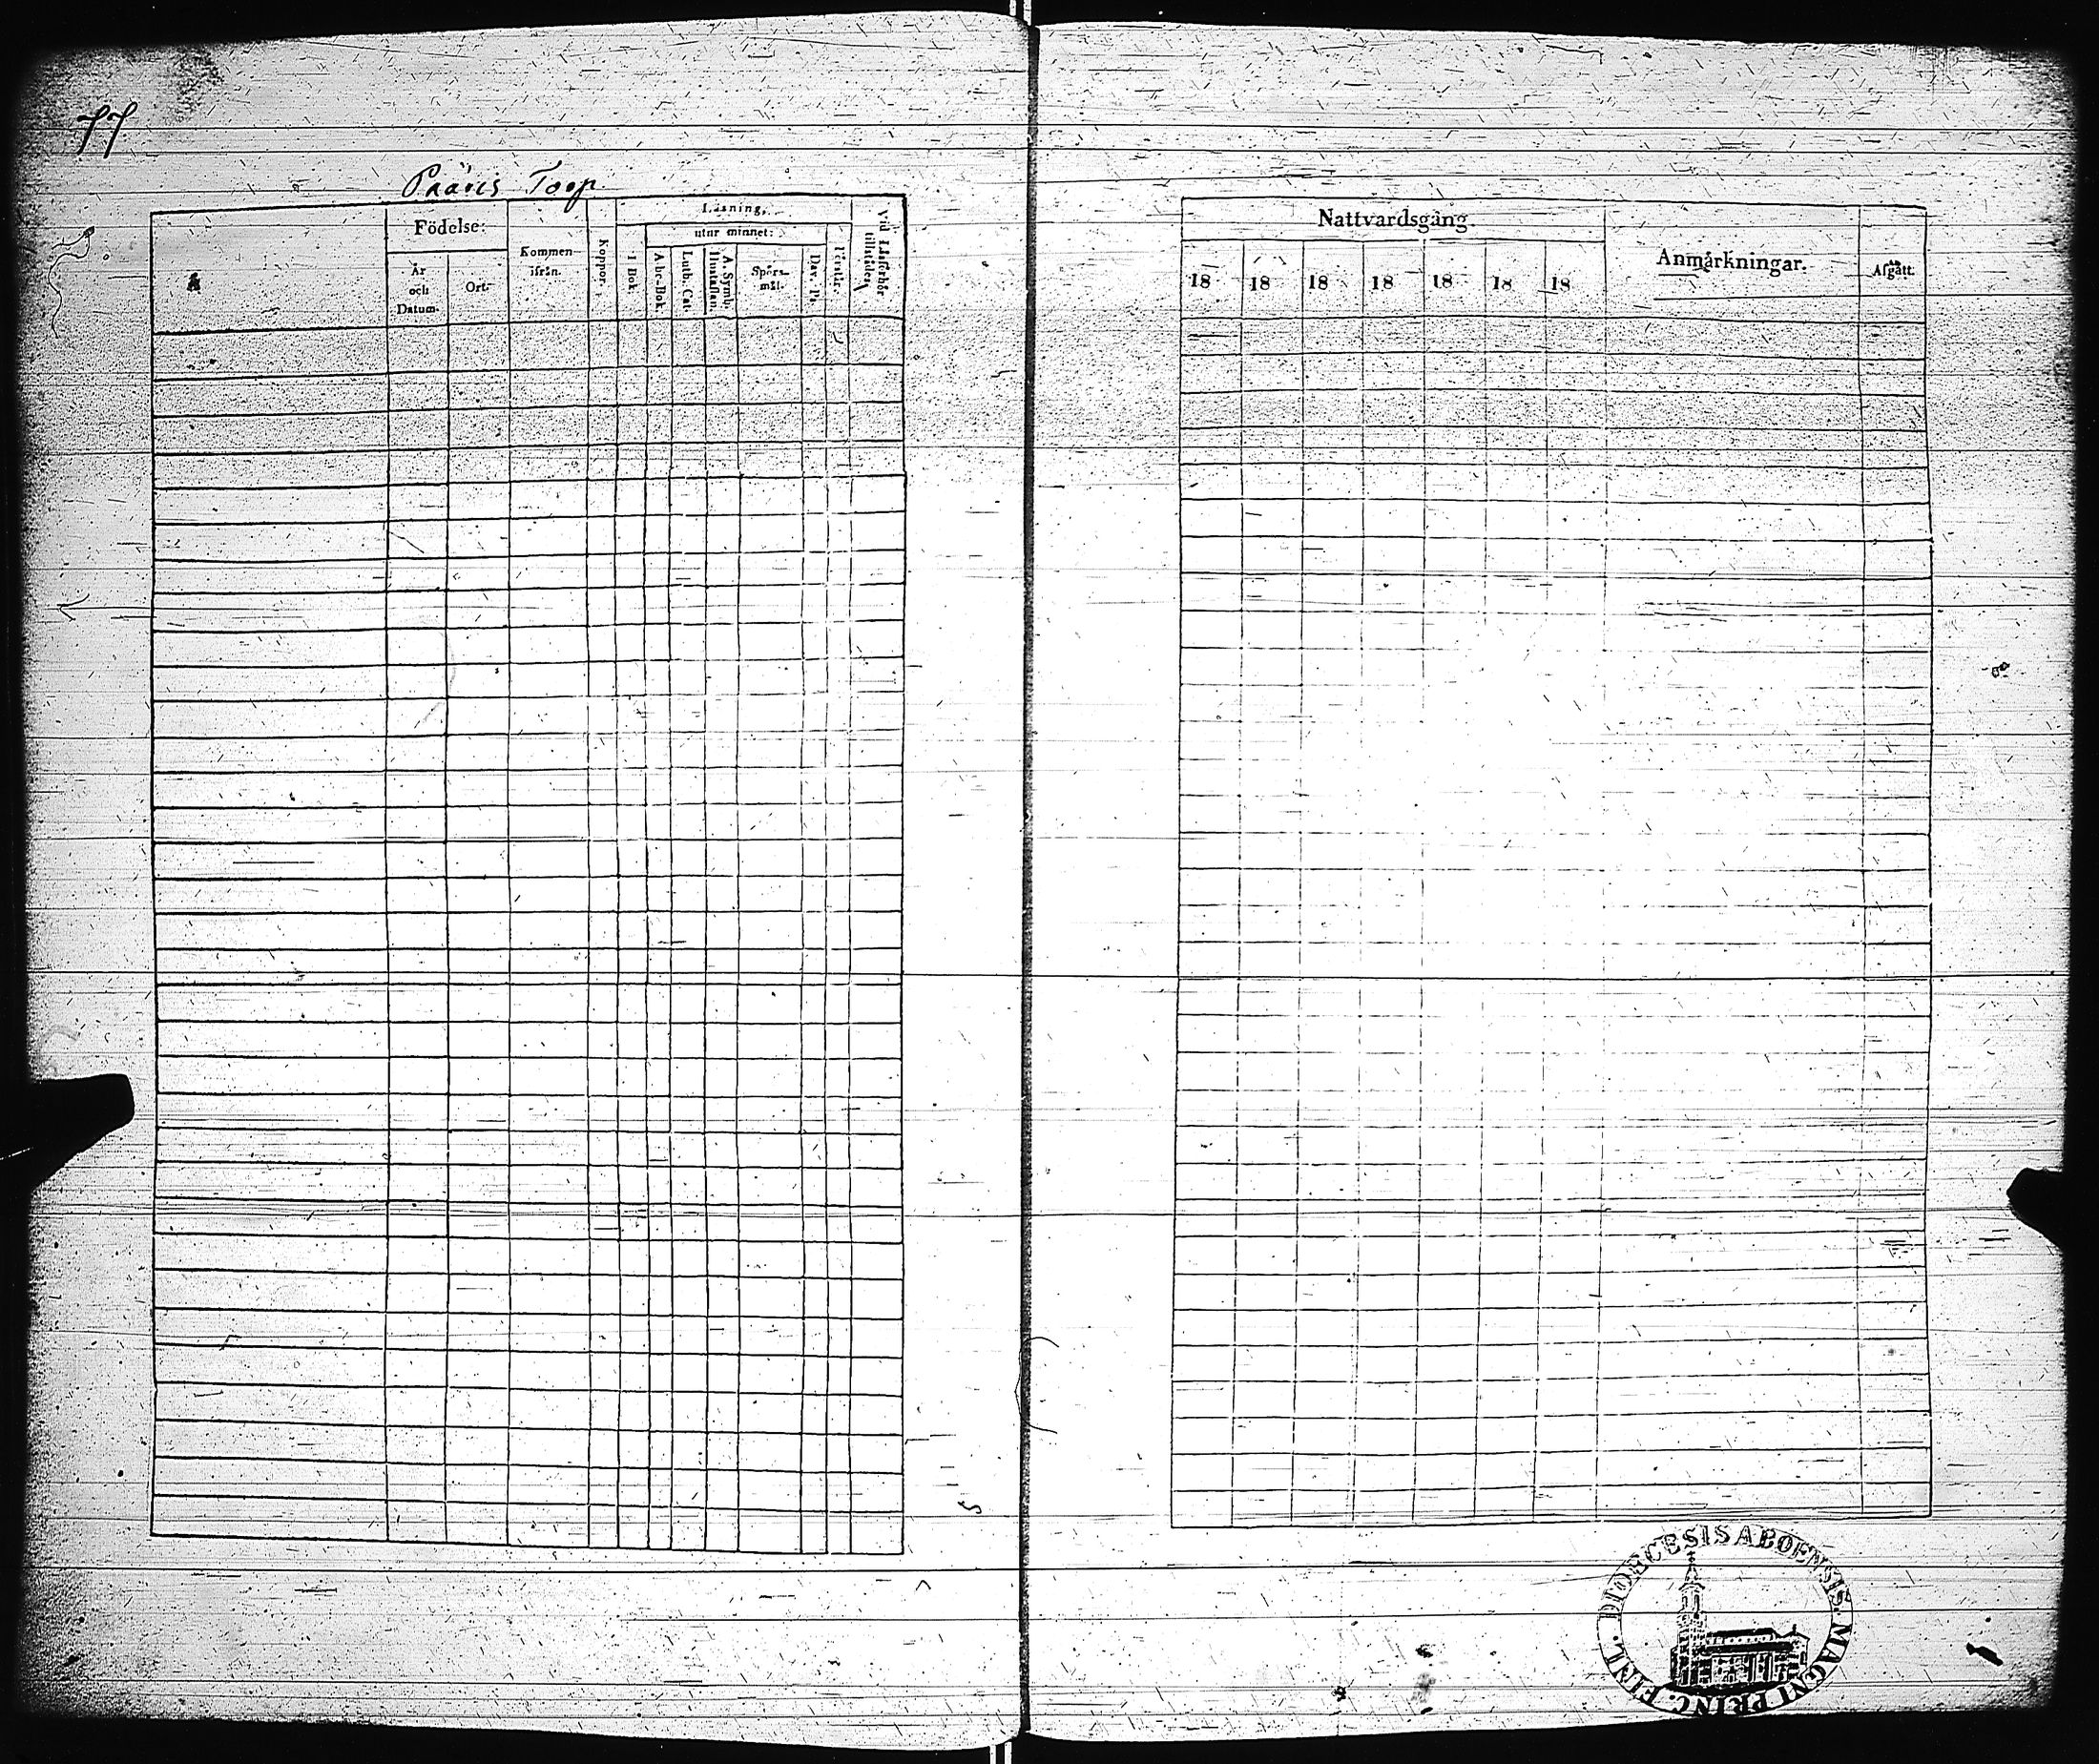 77
Torp
Läsning,
Födelse:
utur minnet:
Kommen
ifrån.
Koppor.
I Bok.
Abc-Bok.
Luth. Cat.
A. Symb.
Hustaflan.
Spörs-
mål.
Dav. Ps.
Vid Läsförhör
tillstädes.
År
och
Datum.
Ort.
Nattvardsgång.
Anmärkningar.
Afgått.
18 18 18 18 18 18 18
DIOECESIS ABOENSIS. MAGNI PRINC. FINL.